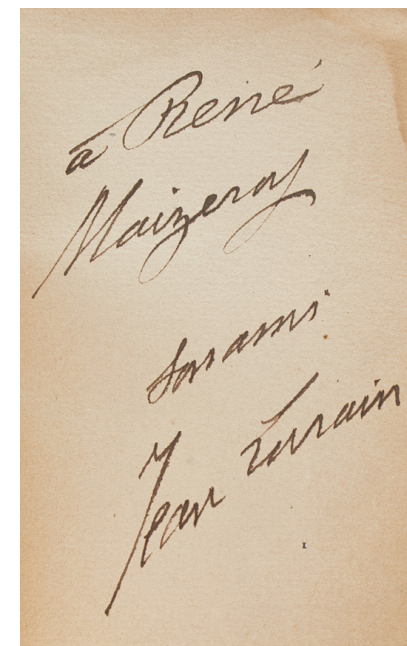 à René
Maizeroy
son ami
Jean Lorrain